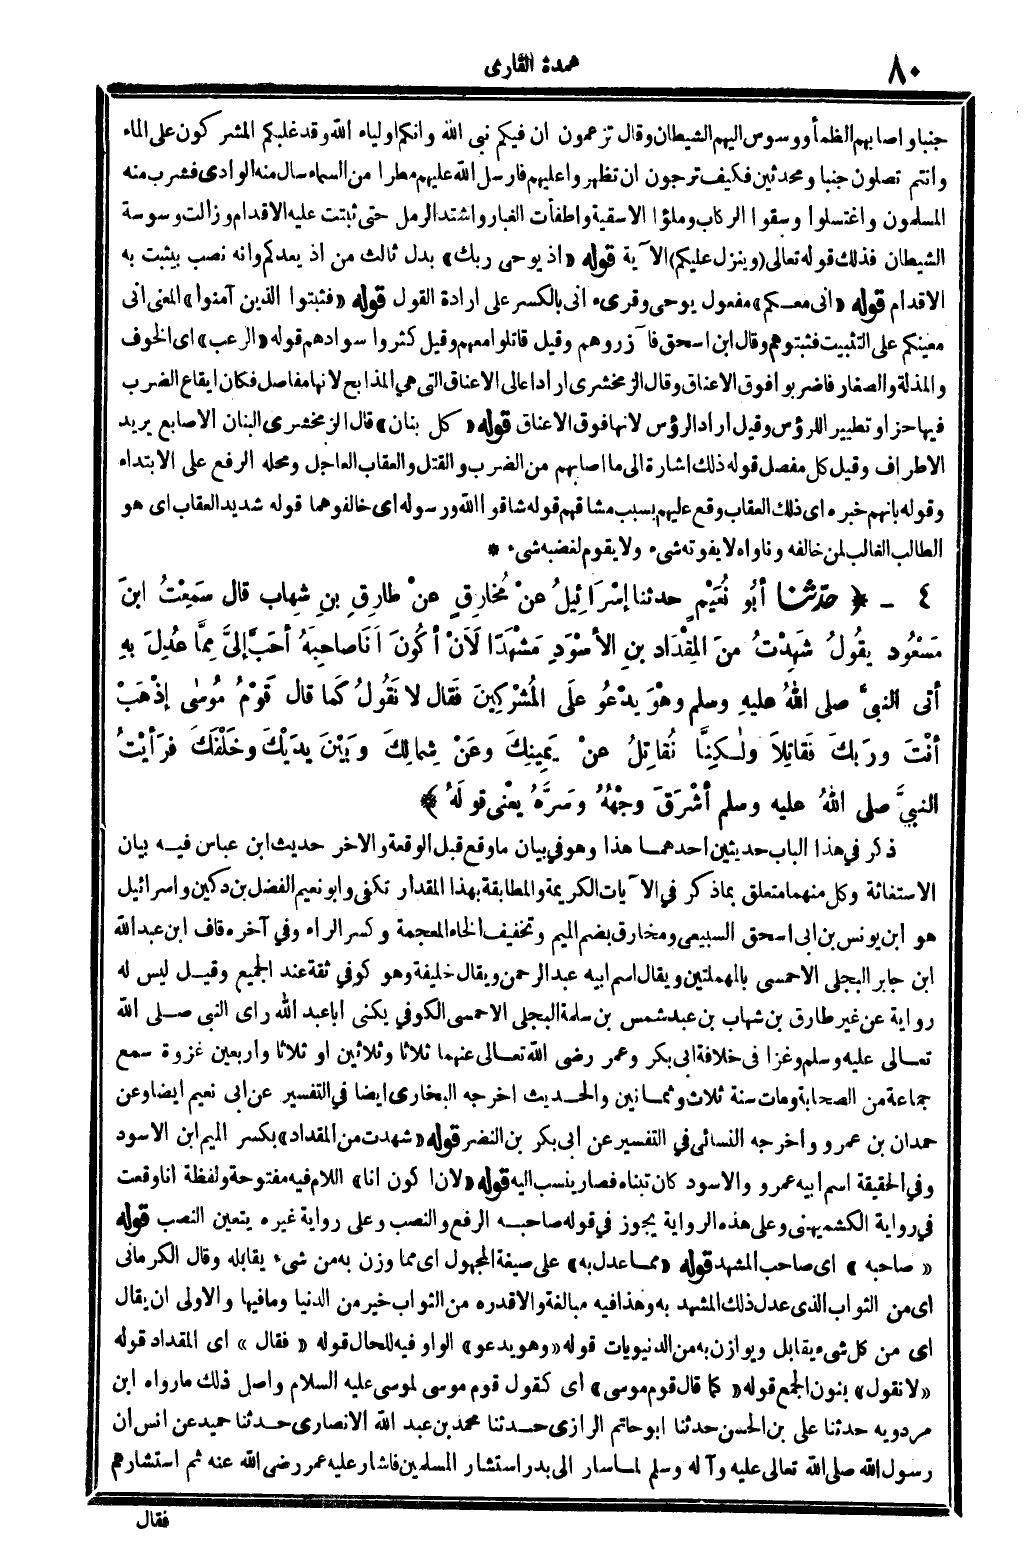 ٨٠
عمدة القارى
جنبا واصابهم الظمأ ووسوس اليهم الشيطان وقال تزعمون ان فيكم نبى الله وانكم اولياء الله وقد غلبكم المشركون على الماء
وانتم تصلون جنبا ومحدثين فكيف ترجون ان تظهروا عليهم فارسل الله عليهم مطرا من السماء سال منه الوادى فشرب منه
المسلمون واغتسلوا وسقوا الركاب وملؤا الاسقية واطفأت الغبار واشتد الرمل حتى ثبتت عليه الاقدام وزالت وسوسة
الشيطان فذلك قوله تعالى (وينزل عليكم) الآية قوله «اذ يوحى ربك» بدل ثالث من اذ يعدكم وانه نصب بيثبت به
الاقدام قوله «انى معكم» مفعول يوحى وقرىء انى بالكسر على ارادة القول قوله «فثبتوا الذين آمنوا» المعنى انى
معينكم على التثبيت فثبتوهم وقال ابن اسحق فآزروهم وقيل قاتلوا معهم وقيل كثروا سوادهم قوله «الرعب» اى الخوف
والمذلة والصغار فاضربوا فوق الاعناق وقال الزمخشرى اراد اعالى الاعناق التى هي المذابح لانها مفاصل فكان ايقاع الضرب
فيها حزا وتطييرا للرؤس وقيل اراد الرؤس لانها فوق الاعناق قوله «كل بنان» قال الزمخشرى البنان الاصابع يريد
الاطراف وقيل كل مفصل قوله ذلك اشارة الى ما اصابهم من الضرب والقتل والعقاب العاجل ومحله الرفع على الابتداء
وقوله بانهم خبره اى ذلك العقاب وقع عليهم بسبب مشاقهم قوله شاقوا الله ورسوله اى خالفوهما قوله شديد العقاب اى هو
الطالب الغالب لمن خالفه وناواه لا يفوته شىء ولا يقوم لغضبه شىء *
٤ - ﴿ حدثنا أبُو نُعَيْمٍ حدثنا إسْرَائِيلُ عنْ مُخَارِقٍ عنْ طارِقِ بنِ شِهابٍ قال سَمِعْتُ ابنَ
مَسْعُودٍ يقُولُ شَهِدْتُ منَ المِقْدَادِ بنِ الأسْوَدِ مَشْهَدًا لَأنْ أكُونَ أنَا صاحِبَهُ أحَبُّ إلىَّ مِمَّا عُدِلَ بِهِ
أتى النبىَّ صلى اللهُ عليهِ وسلم وهْوَ يدْعُو علَى المُشْرِكِينَ فَقال لا نَقُولُ كَما قال قَوْمُ مُوسٰى إذْهَبْ
أنْتَ ورَبكَ فَقاتِلاَ ولٰـكِنَّا نُقاتِلُ عنْ يَمِينِكَ وعَنْ شِمالِكَ وبَيْنَ يدَيْكَ وخَلْفَكَ فرَأيْتُ
النبيَّ صلى اللهُ عليه وسلم أشْرَقَ وجْهُهُ وسَرَّهُ يعْنى قولَهُ ﴾
ذكر في هذا الباب حديثين احدهما هذا وهو في بيان ما وقع قبل الوقعة والآخر حديث ابن عباس فيه بيان
الاستغاثة وكل منهما متعلق بما ذكر في الآيات الكريمة والمطابقة بهذا المقدار تكفى وابو نعيم الفضل بن دكين واسرائيل
هو ابن يونس بن ابى اسحق السبيعى ومخارق بضم الميم وتخفيف الخاء المعجمة وكسر الراء وفي آخره قاف ابن عبد الله
ابن جابر البجلى الاحمسى بالمهملتين ويقال اسم ابيه عبد الرحمن ويقال خليفة وهو كوفي ثقة عند الجميع وقيل ليس له
رواية عن غير طارق بن شهاب بن عبد شمس بن سلمة البجلى الاحمسى الكوفي يكنى ابا عبد الله راى النبى صلى الله
تعالى عليه وسلم وغزا فى خلافة ابى بكر وعمر رضى الله تعالى عنهما ثلاثا وثلاثين او ثلاثا واربعين غزوة سمع
جماعة من الصحابة ومات سنة ثلاث وثمانين والحديث اخرجه البخارى ايضا في التفسير عن ابى نعيم ايضا وعن
حمدان بن عمرو واخرجه النسائى في التفسير عن ابى بكر بن النضر قوله «شهدت من المقداد» بكسر الميم ابن الاسود
وفي الحقيقة اسم ابيه عمرو والاسود كان تبناه فصار ينسب اليه قوله «لان اكون انا» اللام فيه مفتوحة ولفظة انا وقعت
في رواية الكشميهنى وعلى هذه الرواية يجوز في قوله صاحبه الرفع والنصب وعلى رواية غيره يتعين النصب قوله
«صاحبه» اى صاحب المشهد قوله «مما عدل به» على صيغة المجهول اى مما وزن به من شىء يقابله وقال الكرمانى
اى من الثواب الذى عدل ذلك المشهد به وهذا فيه مبالغة والاقدره من الثواب خير من الدنيا ومافيها والاولى ان يقال
اى من كل شىء يقابل ويوازن به من الدنيويات قوله «وهو يدعو» الواو فيه للحال قوله «فقال» اى المقداد قوله
«لا نقول» بنون الجمع قوله «كما قال قوم موسى» اى كقول قوم موسى لموسى عليه السلام واصل ذلك مارواه ابن
مردويه حدثنا على بن الحسن حدثنا ابو حاتم الرازى حدثنا محمد بن عبد الله الانصارى حدثنا حميد عن انس ان
رسول الله صلى الله تعالى عليه وآله وسلم لما سار الى بدر استشار المسلمين فاشار عليه عمر رضى الله عنه ثم استشارهم
فقال